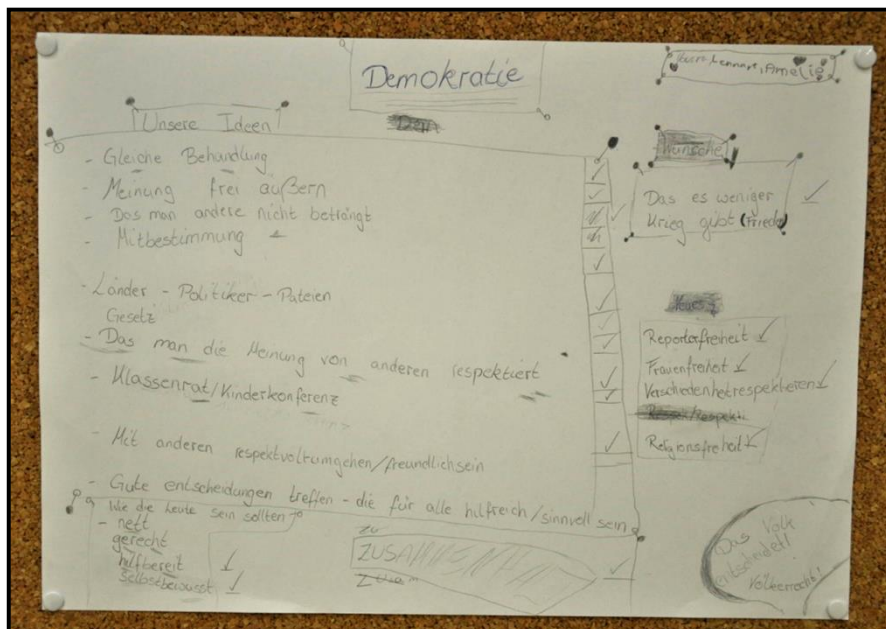 Demokratie
Lennart, Amelie
Unsere Ideen
- Gleiche Behandlung
- Meinung frei äußern
- Das man andere nicht beträngt
- Mitbestimmung
- Länder - Politiker - Pateien
Gesetz
- Das man die Meinung von anderen respektiert
- Klassenrat/Kinderkonferenz
- Mit anderen respektvoll umgehen/freundlich sein
- Gute entscheidungen treffen - die für alle hilfreich/sinnvoll sein
Wie die Leute sein sollten
- nett
gerecht
hilfbereit
Selbstbewusst
zu
Wünsche
Das es weniger
Krieg gibt (Friede)
Neues
Reporterfreiheit
Frauenfreiheit
Verschiedenheit respektieren
Religionsfreiheit
Das Volk
entscheidet!
Volkerrecht!